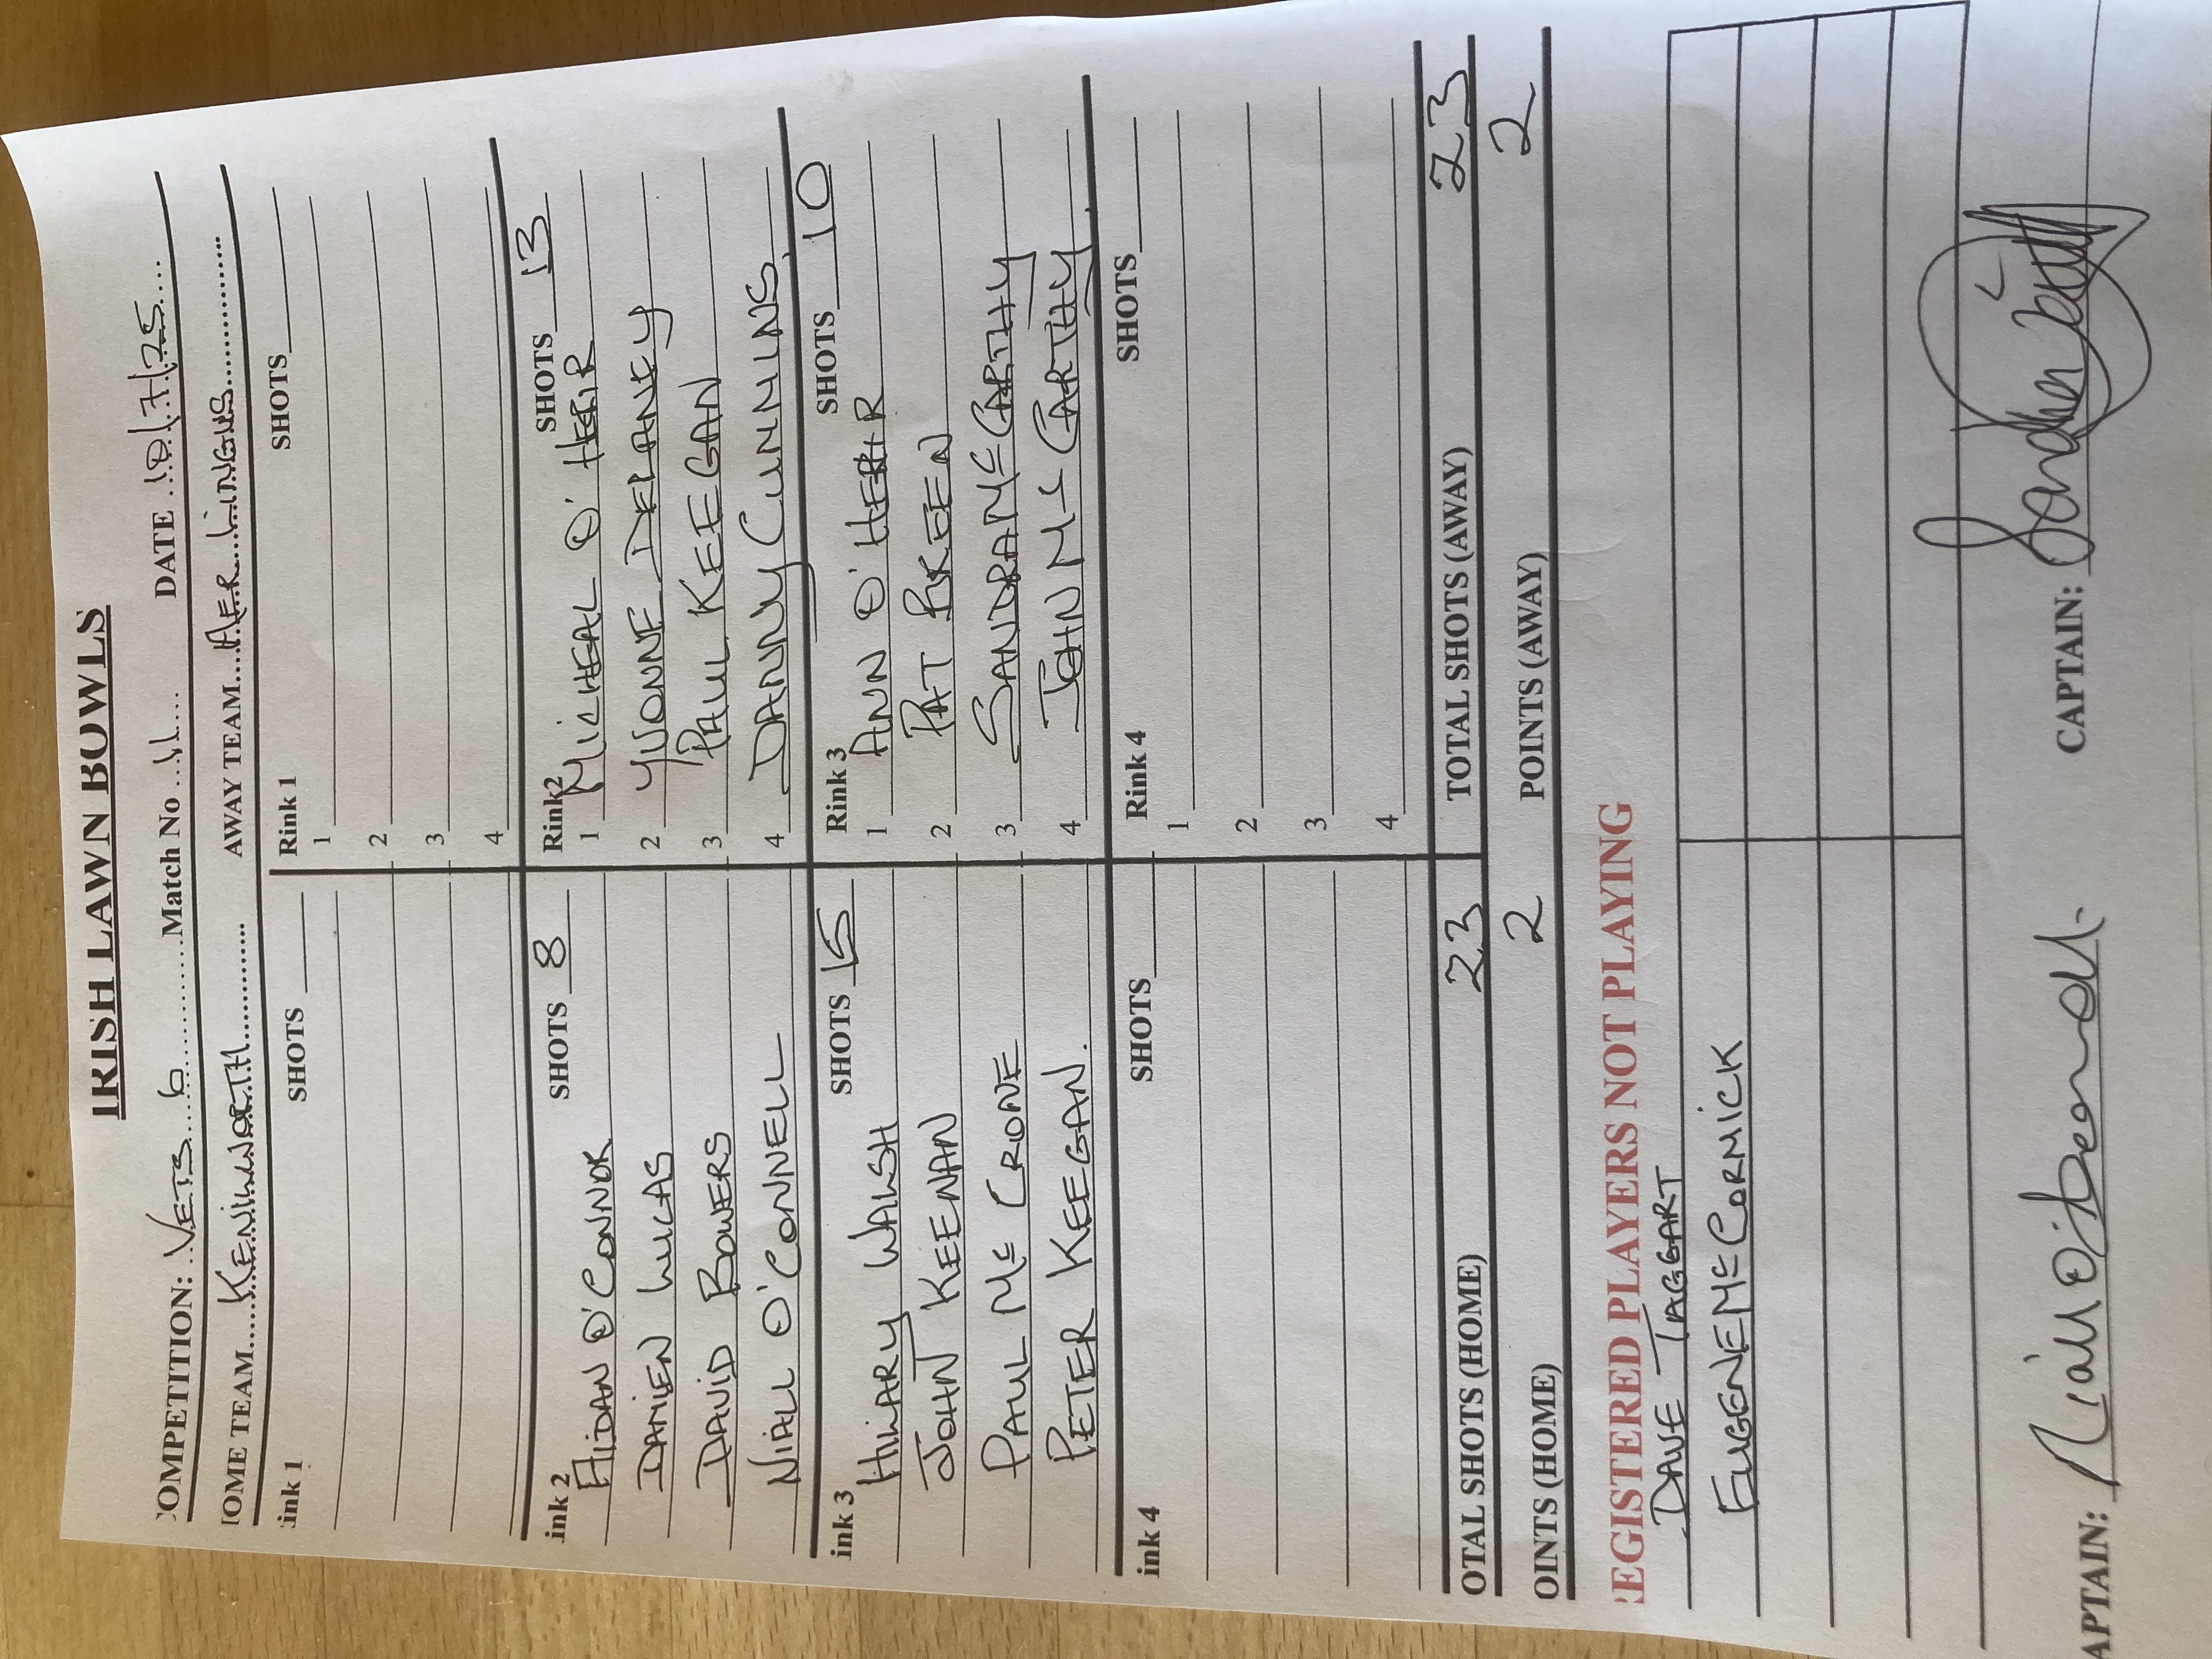 IRISH LAWN BOWLS
COMPETITION: VETS 6 Match No 11 DATE 10/7/25
HOME TEAM KENILWORTH AWAY TEAM AER LINGUS
ink 1 SHOTS Rink 1 SHOTS
1
2
3
4
ink 2 SHOTS 8 Rink2 SHOTS 13
AIDAN O'CONNOR 1 MICHEAL O'HEIR
DAMIEN LUCAS 2 YVONNE DELANEY
DAVID BOWERS 3 PAUL KEEGAN
NIALL O'CONNELL 4 DANNY CUMMINS
ink 3 SHOTS 15 Rink 3 SHOTS 10
HILARY WALSH 1 ANN O'HEHIR
JOHN KEENAN 2 PAT
PAUL Mc CRONE 3 SANDRA Mc CARTHY
PETER KEEGAN. 4 JOHN Mc CARTHY
ink 4 SHOTS Rink 4 SHOTS
1
2
3
4
OTAL SHOTS (HOME) 23 TOTAL SHOTS (AWAY) 23
OINTS (HOME) 2 POINTS (AWAY) 2
REGISTERED PLAYERS NOT PLAYING
DAVE TAGGART
EUGENE Mc CORMICK
APTAIN: CAPTAIN: Sandra